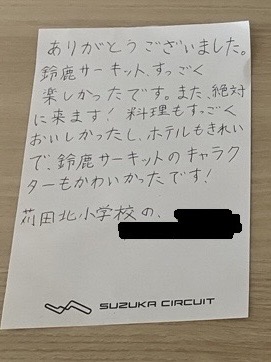 ありがとうございました。
鈴鹿サーキット、すっごく
楽しかったです。また、絶対
に来ます！料理もすっごく
おいしかったし、ホテルもきれい
で、鈴鹿サーキットのキャラク
ターもかわいかったです！
苅田北小学校の、
SUZUKA CIRCUIT